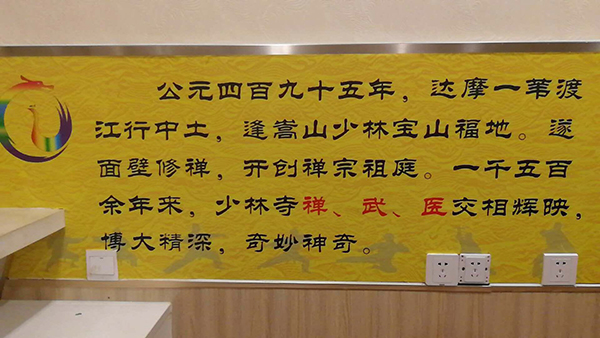 公元四百九十五年，达摩一苇渡
江行中土，逢嵩山少林宝山福地。遂
面壁修禅，开创禅宗祖庭。一千五百
余年来，少林寺禅、武、医交相辉映，
博大精深，奇妙神奇。